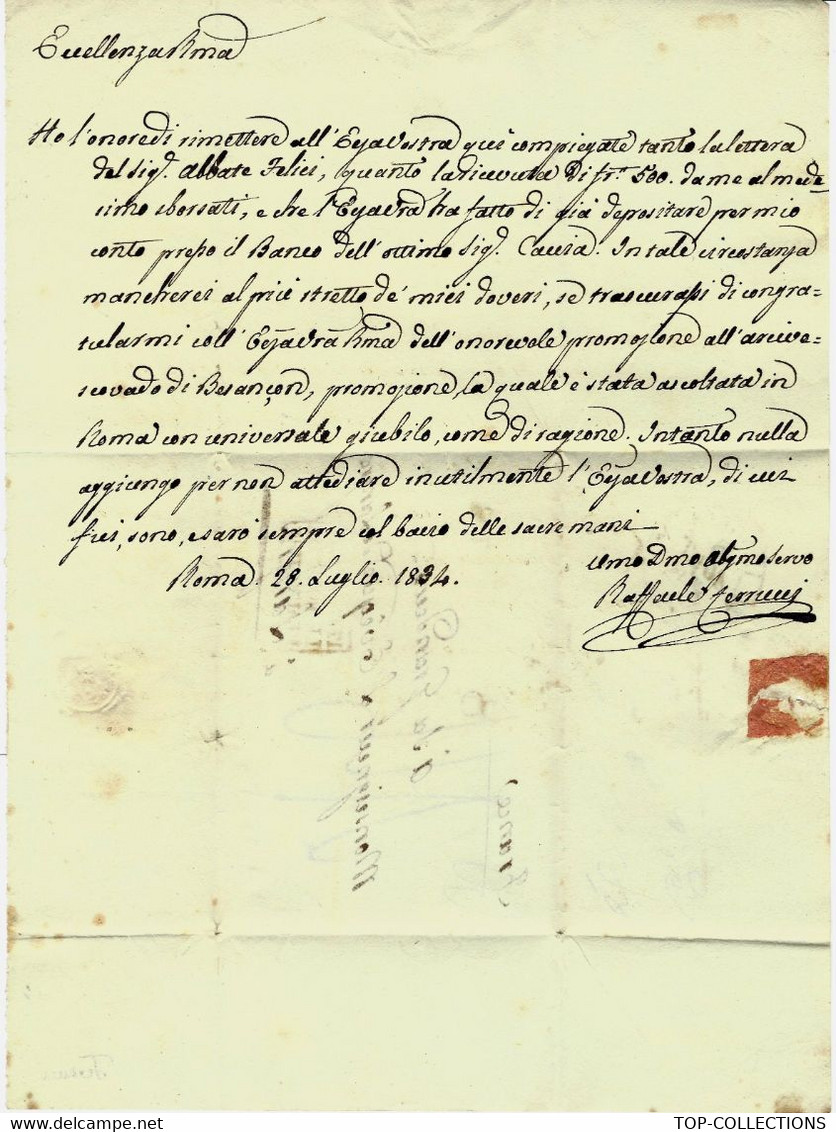 Eccellenza Rma
Ho l'onore di rimettere all'Eza Vostra quì compiegate tanto la lettera
del Sig.r Abbate Felici, quanto la ricevuta di fr. 500. da me al mede-
simo sborsati, e che l'Eza Vrà ha fatto di già depositare per mio
conto presso il Banco dell'ottimo Sig.r Caccia. In tale circostanza
mancherei al più stretto de' miei doveri, se trascurassi di congra-
tularmi coll'Eza Vra Rma dell'onorevole promozione all'arcive-
scovado di Besançon, promozione, la quale è stata ascoltata in
Roma con universale giubilo, come di ragione. Intanto nulla
aggiungo per non attediare inutilmente l'Eza Vostra, di cui
fui, sono, e sarò sempre col bacio delle sacre mani
Roma. 28. Luglio. 1834.
Umo Dmo Obgmo Servo
Raffaele Ferrucci
TOP-COLLECTIONS